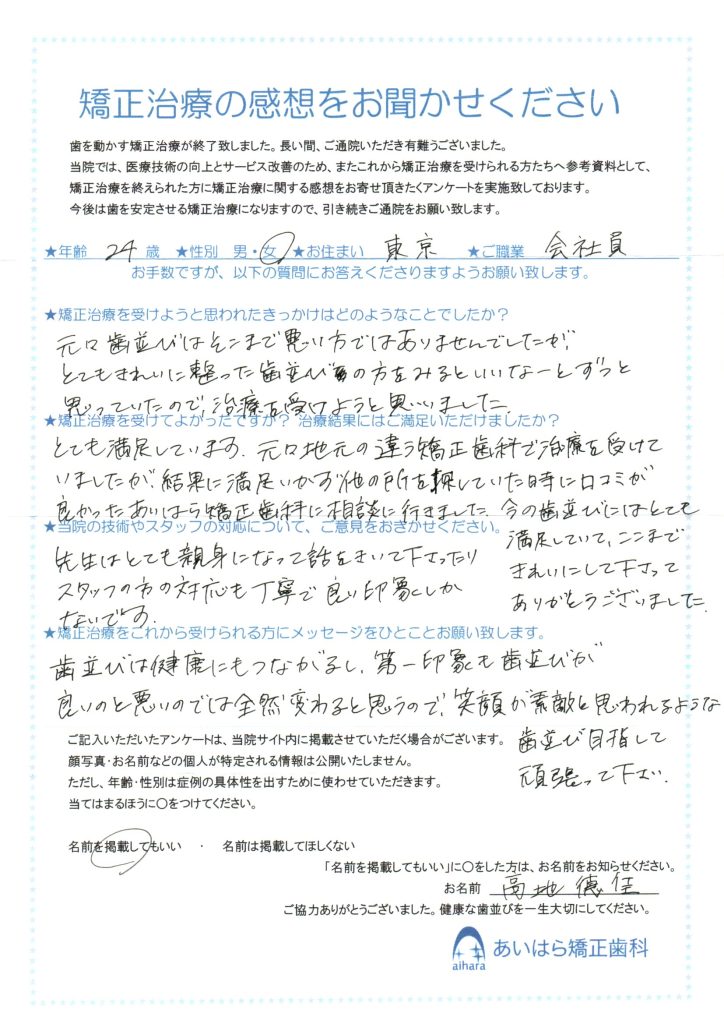 矯正治療の感想をお聞かせください
歯を動かす矯正治療が終了致しました。長い間、ご通院いただき有難うございました。
当院では、医療技術の向上とサービス改善のため、またこれから矯正治療を受けられる方たちへ参考資料として、
矯正治療を終えられた方に矯正治療に関する感想をお寄せ頂きたくアンケートを実施致しております。
今後は歯を安定させる矯正治療になりますので、引き続きご通院をお願い致します。
★年齢 24 歳 ★性別 男・女 ★お住まい 東京 ★ご職業 会社員
お手数ですが、以下の質問にお答えくださりますようお願い致します。
★矯正治療を受けようと思われたきっかけはどのようなことでしたか?
元々歯並びはそこまで悪い方ではありませんでしたが、
とてもきれいに整った歯並びの方をみるといいなーとずっと
思っていたので、治療を受けようと思いました。
★矯正治療を受けてよかったですか? 治療結果にはご満足いただけましたか?
とても満足しています。元々地元の違う矯正歯科で治療を受けて
いましたが、結果に満足いかず他の所を探していた時に口コミが
良かったあいはら矯正歯科に相談に行きました。今の歯並びにはとても
満足していて、ここまで
きれいにして下さって
ありがとうございました。
★当院の技術やスタッフの対応について、ご意見をおきかせください。
先生はとても親身になって話をきいて下さったり
スタッフの方の対応も丁寧で良い印象しか
ないです。
★矯正治療をこれから受けられる方にメッセージをひとことお願い致します。
歯並びは健康にもつながるし、第一印象も歯並びが
良いのと悪いのでは全然変わると思うので、笑顔が素敵と思われるような
歯並び目指して
頑張って下さい。
ご記入いただいたアンケートは、当院サイト内に掲載させていただく場合がございます。
顔写真・お名前などの個人が特定される情報は公開いたしません。
ただし、年齢・性別は症例の具体性を出すために使わせていただきます。
当てはまるほうに○をつけてください。
名前を掲載してもいい ・ 名前は掲載してほしくない
「名前を掲載してもいい」に○をした方は、お名前をお知らせください。
お名前 高地 徳佳
ご協力ありがとうございました。健康な歯並びを一生大切にしてください。
aihara あいはら矯正歯科